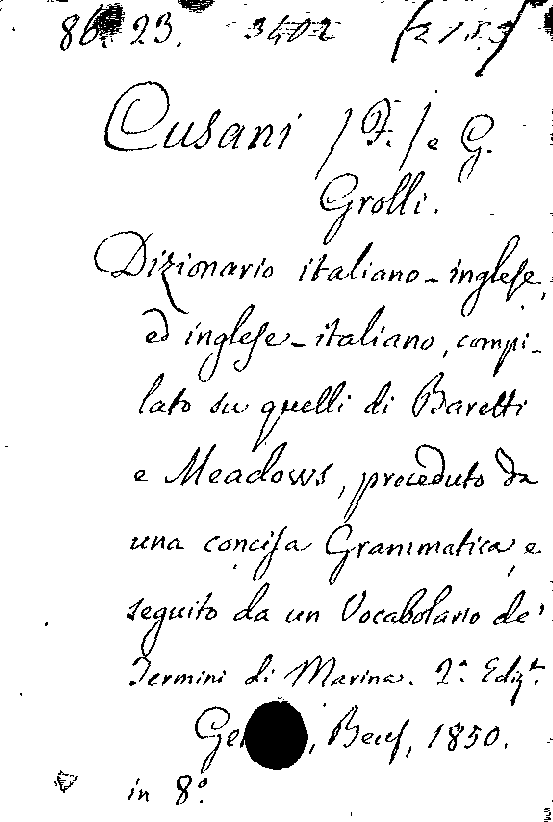 86. 23. 3402 (2153)
Cusani (F.) e G.
Grolli.
Dizionario italiano-inglese,
ed inglese-italiano, compi-
lato su quelli di Baretti
e Meadows, preceduto da
una concisa Grammatica, e
seguito da un Vocabolario de'
Termini di Marina. 2ª Edizˢ.
Ge , Beuf, 1850.
in 8º